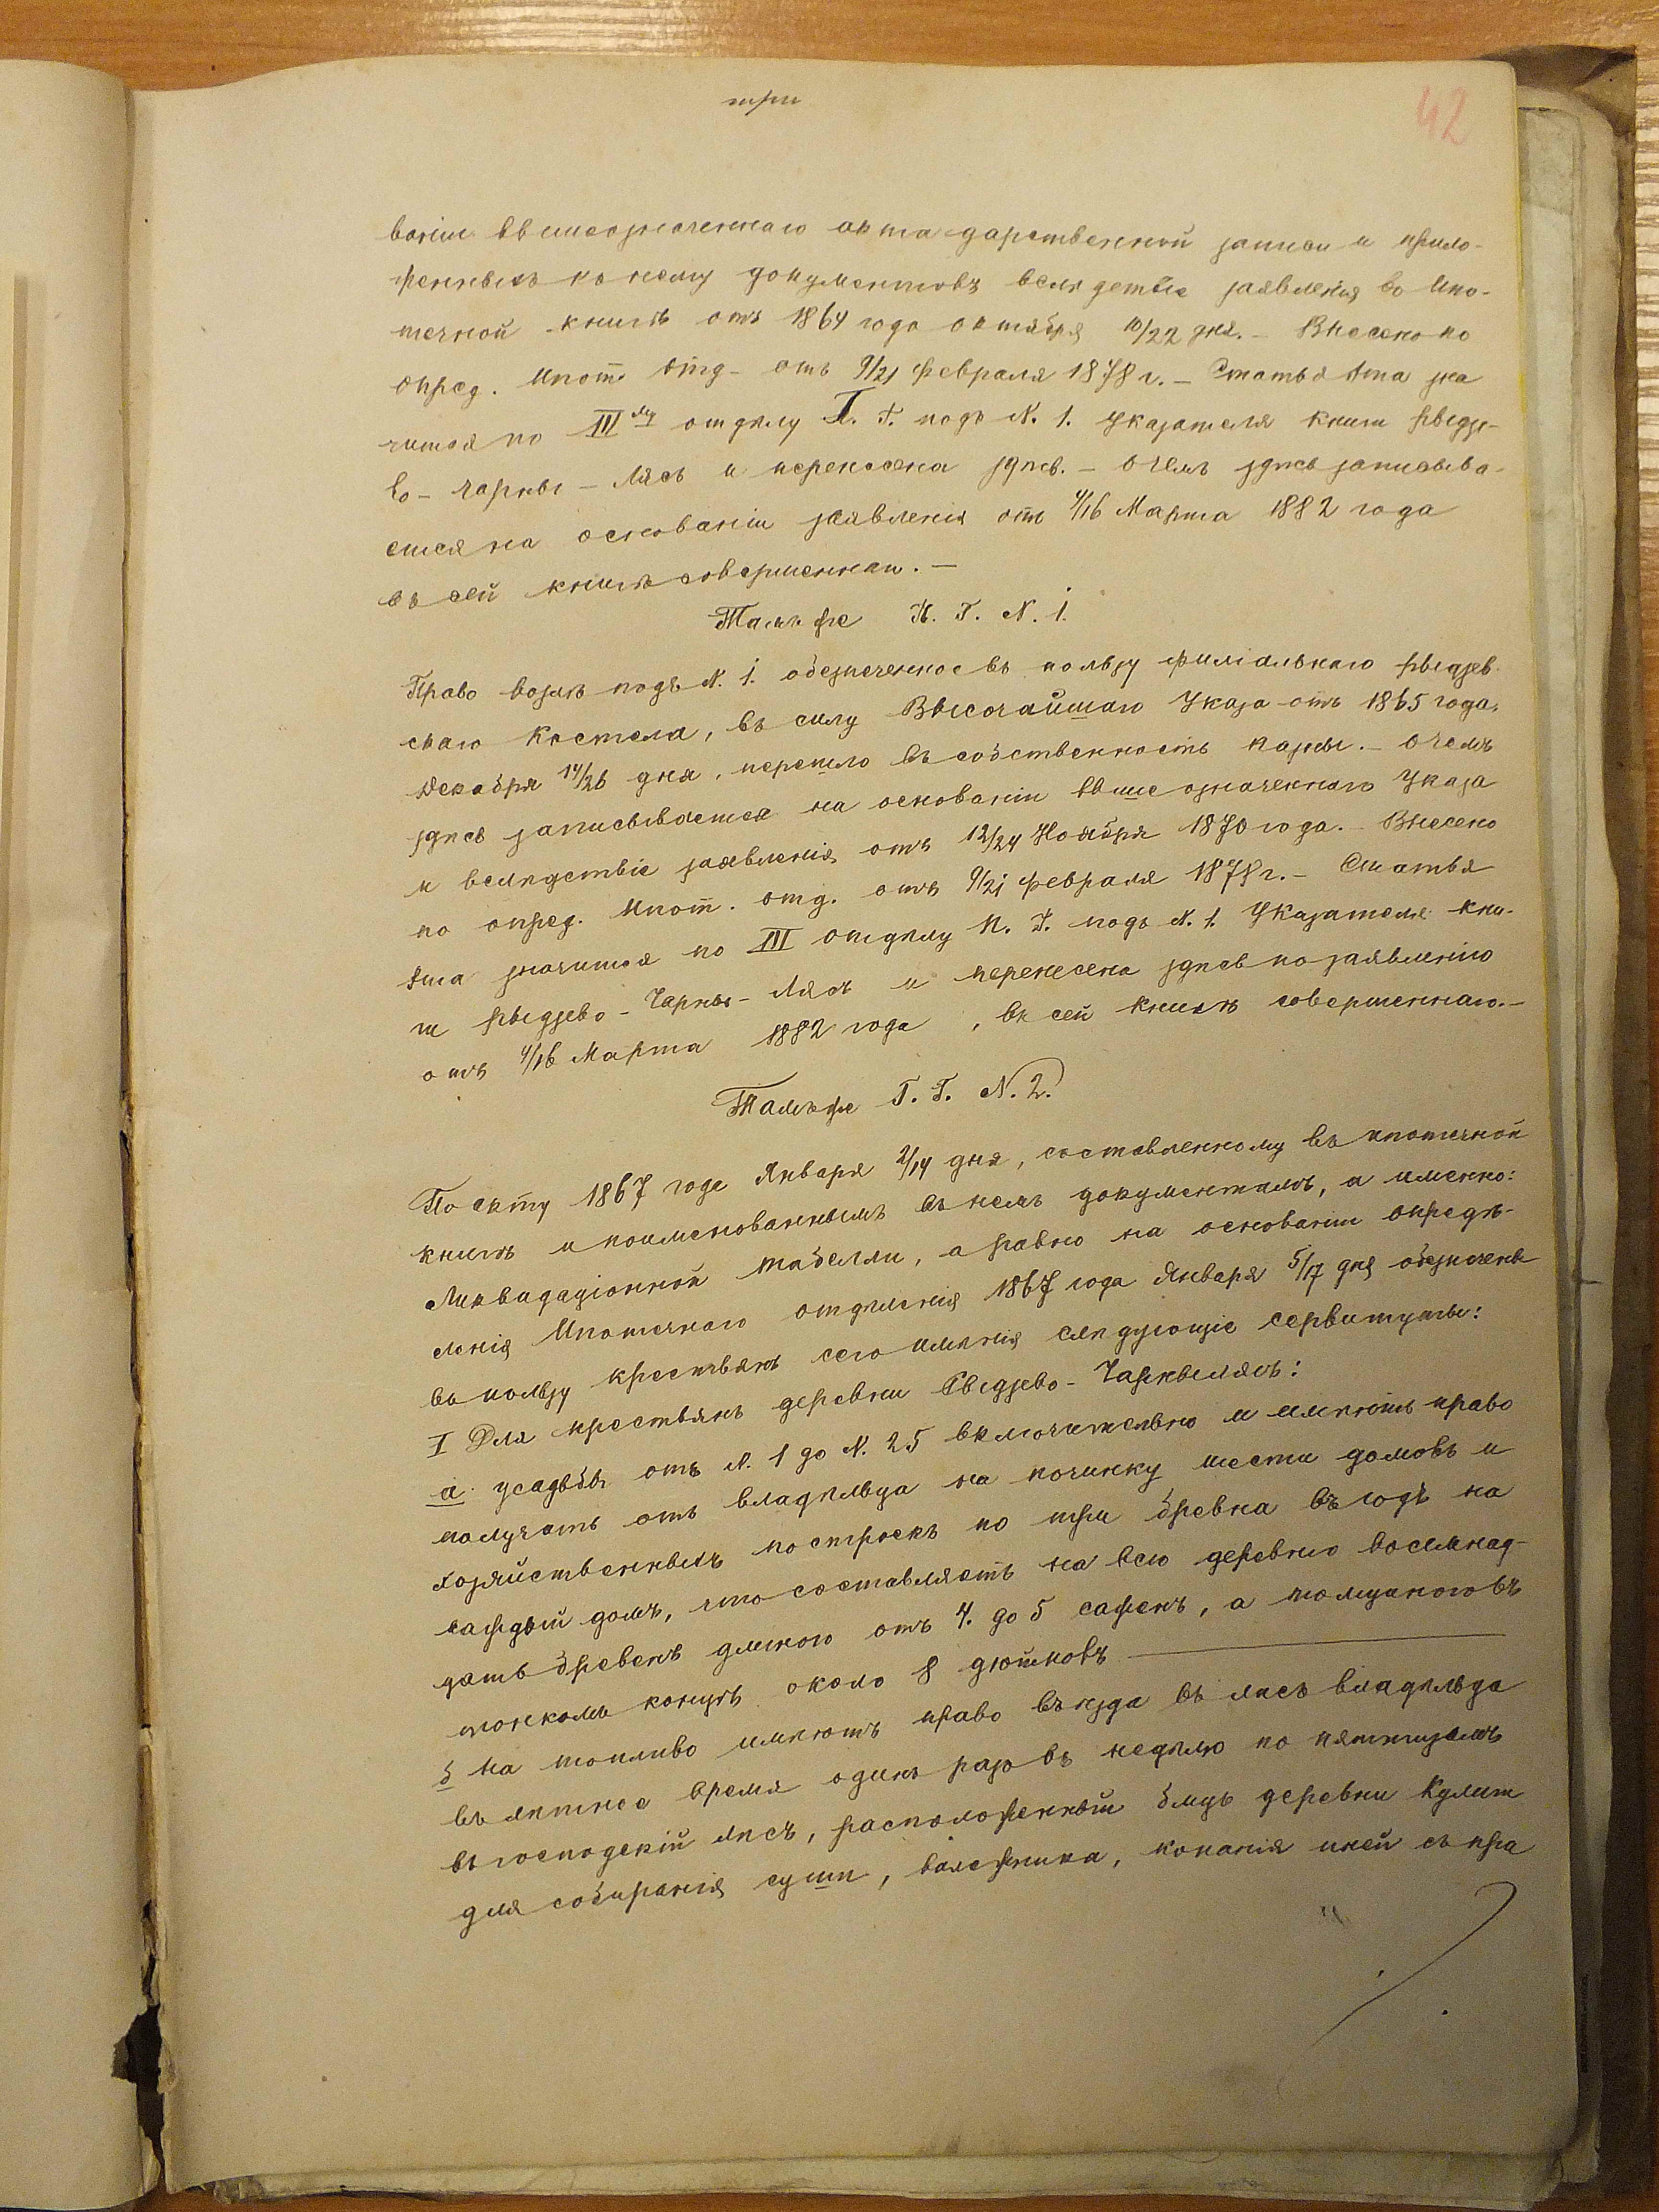 три
42
ваніи вышеозначеннаго акта дарственной записи и прило-
женныхъ къ нему документовъ вслѣдствіе заявленія въ Ипо-
течной книгѣ отъ 1864 года октября 10/22 дня. – Внесено по
опред. Ипот. Отд – отъ 9/21 февраля 1878 г. – Статья эта зна
чится по III му отдѣлу Г. Г. подъ N. 1. Указателя книги
во – Чарны – Лясъ и перенесена здѣсь. – О чемъ здѣсь записыва-
ется на основаніи заявленія отъ 4/16 Марта 1882 года
въ сей книгѣ совершеннаи. –
Тамъ же К. Г. N. 1.
Право возлѣ подъ N. 1. обезпеченное въ пользу филіальнаго
скаго Костела, въ силу Высочайшаго Указа отъ 1865 года,
Декабря 14/26 дня, перешло въ собственность казны. – О чемъ
здѣсь записывается на основаніи вышеозначеннаго Указа
и вслѣдствіе заявленія отъ 12/24 Ноября 1870 года. – Внесено
по опред. Ипот. отд. отъ 9/21 февраля 1878 г. – Статья
эта значится по III отдѣлу К. Г. подъ N. 1. Указателя кни-
ги – Чарны – Лясъ и перенесена здѣсь по заявленію
отъ 4/16 Марта 1882 года, въ сей книгѣ совершеннаго. –
Тамъ же Г. Г. N. 2.
По акту 1867 года Января 2/14 дня, составленному въ ипотечной
книгѣ и поименованнымъ въ немъ документамъ, а именно:
Ликвидаціонной табелли, а равно на основаніи опредѣ-
ленія Ипотечнаго отдѣленія 1867 года Января 5/17 дня обезпечены
въ пользу крестьянъ сего имѣнія слѣдующіе сервитуты:
I Для крестьянъ деревни Сведзево – Чарнылясъ:
а усадьбы отъ N. 1 до N. 25 включительно и имѣютъ право
получать отъ владѣльца на починку шести домовъ и
хозяйственныхъ построекъ по три бревна въ годъ на
каждый домъ, что составляетъ на всю деревню восемнад-
цать бревенъ длиною отъ 4. до 5 саженъ, а толщиною въ
тонкомъ концѣ около 8 дюймовъ
б На топливо имѣютъ право въѣзда въ лѣсъ владѣльца
въ лѣтнее время одинъ разъ въ недѣлю по пятницамъ
въ господскій лѣсъ, расположенный близь деревни Кулиги
для собиранія суши, валежника, копанія пней съ пра